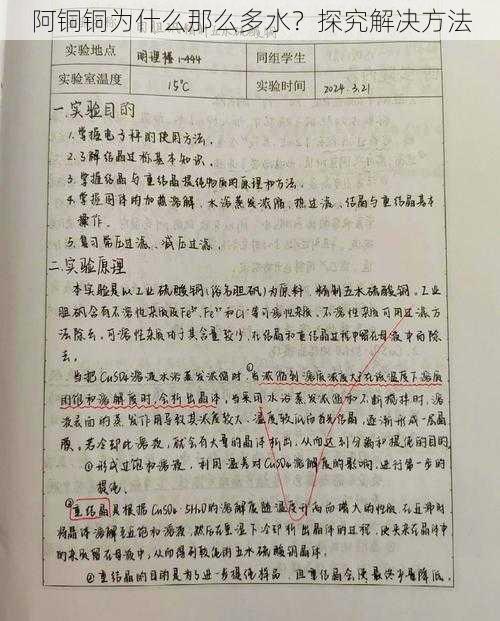 阿铜铜为什么那么多水？探究解决方法
实验地点 明理楼1-444 同组学生
实验室温度 15℃ 实验时间 2024.3.21
一 实验目的
1.掌握电子秤的使用方法。
2.了解结晶过程基本知识。
3.掌握结晶与重结晶提纯物质的原理和方法。
4.掌握固体的加热溶解、水浴蒸发浓缩、热过滤、结晶与重结晶基本
操作。
5.复习常压过滤、减压过滤。
二.实验原理
本实验是以工业硫酸铜(俗名胆矾)为原料，精制五水硫酸铜。工业
胆矾含有不溶性杂质及Fe²⁺、Fe³⁺和Cl⁻等可溶性杂质，不溶性杂质可用过滤方
法除去，可溶性杂质由于其含量较少，在结晶和重结晶过程中留在母液中而除
去。
当把CuSO₄溶液水浴蒸发浓缩时，当浓缩到溶质浓度大于在该温度下溶质
的饱和溶解度时，会析出晶体，当采用水浴蒸发浓缩和不断搅拌时，溶
液表面的蒸发作用导致其浓度较大、温度较低而首先结晶，逐渐形成一层晶
膜。若冷却此溶液，就会有大量的晶体析出，从而达到分离和提纯的目的
①形成过饱和溶液，利用温差对CuSO₄溶解度的影响，进行第一步的
提纯。
②重结晶是根据CuSO₄·5H₂O的溶解度随温度升高而增大的性质，在近沸时
将晶体溶解至近饱和溶液，然后在室温下冷却析出晶体的过程，使未来在晶体中
的杂质留在母液中，从而得到较纯的五水硫酸铜晶体。
②重结晶的目的是为了进一步提纯样品，且重结晶会使最终产量降低。